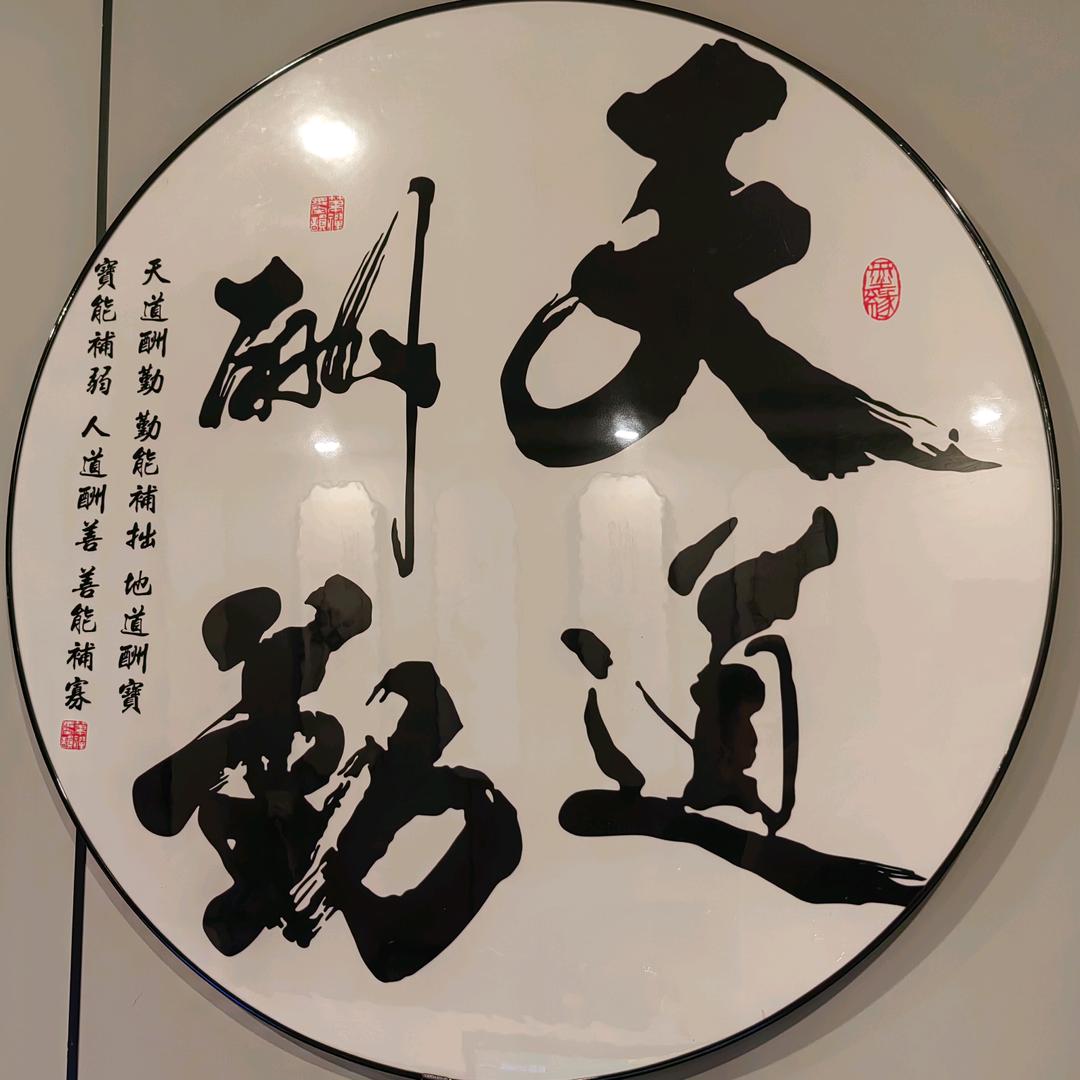 天道
酬勤
天道酬勤 勤能補拙 地道酬寶
寶能補弱 人道酬善 善能補寡